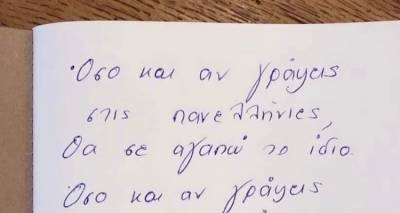 Όσο και αν γράψεις
στις πανελλήνιες,
θα σε αγαπώ το ίδιο.
Όσο και αν γράψεις